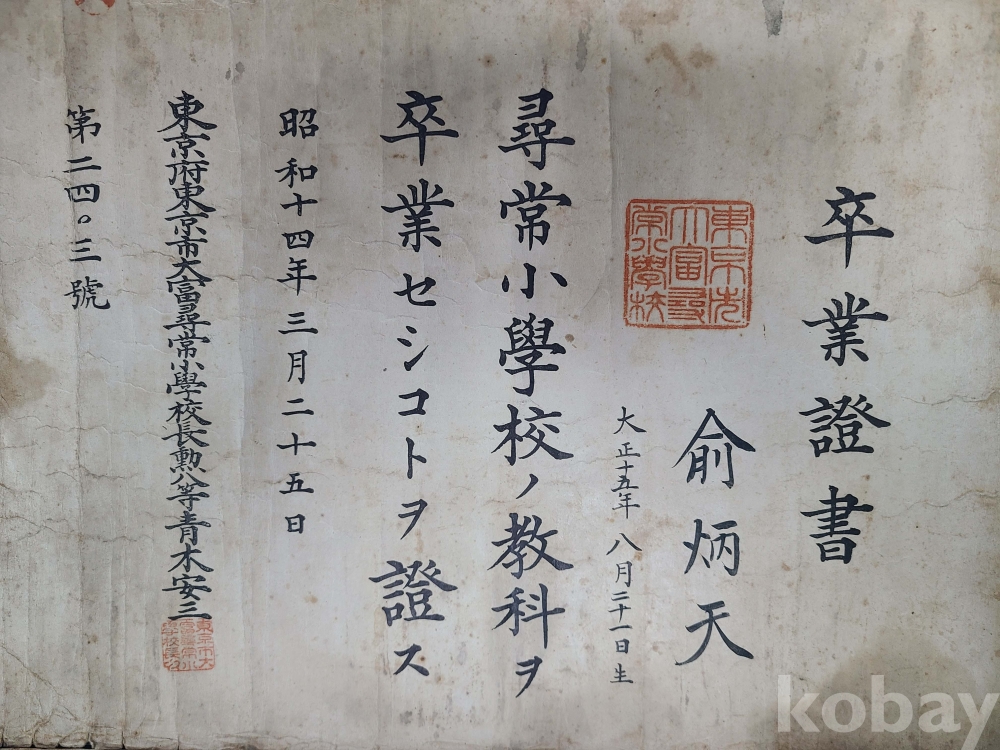 卒業證書
東京市
大富尋
常小學校
俞炳天
大正十五年八月二十一日生
尋常小學校ノ教科ヲ
卒業セシコトヲ證ス
昭和十四年三月二十五日
東京府東京市大富尋常小學校長勲八等青木安三
第二四〇三號
kobay